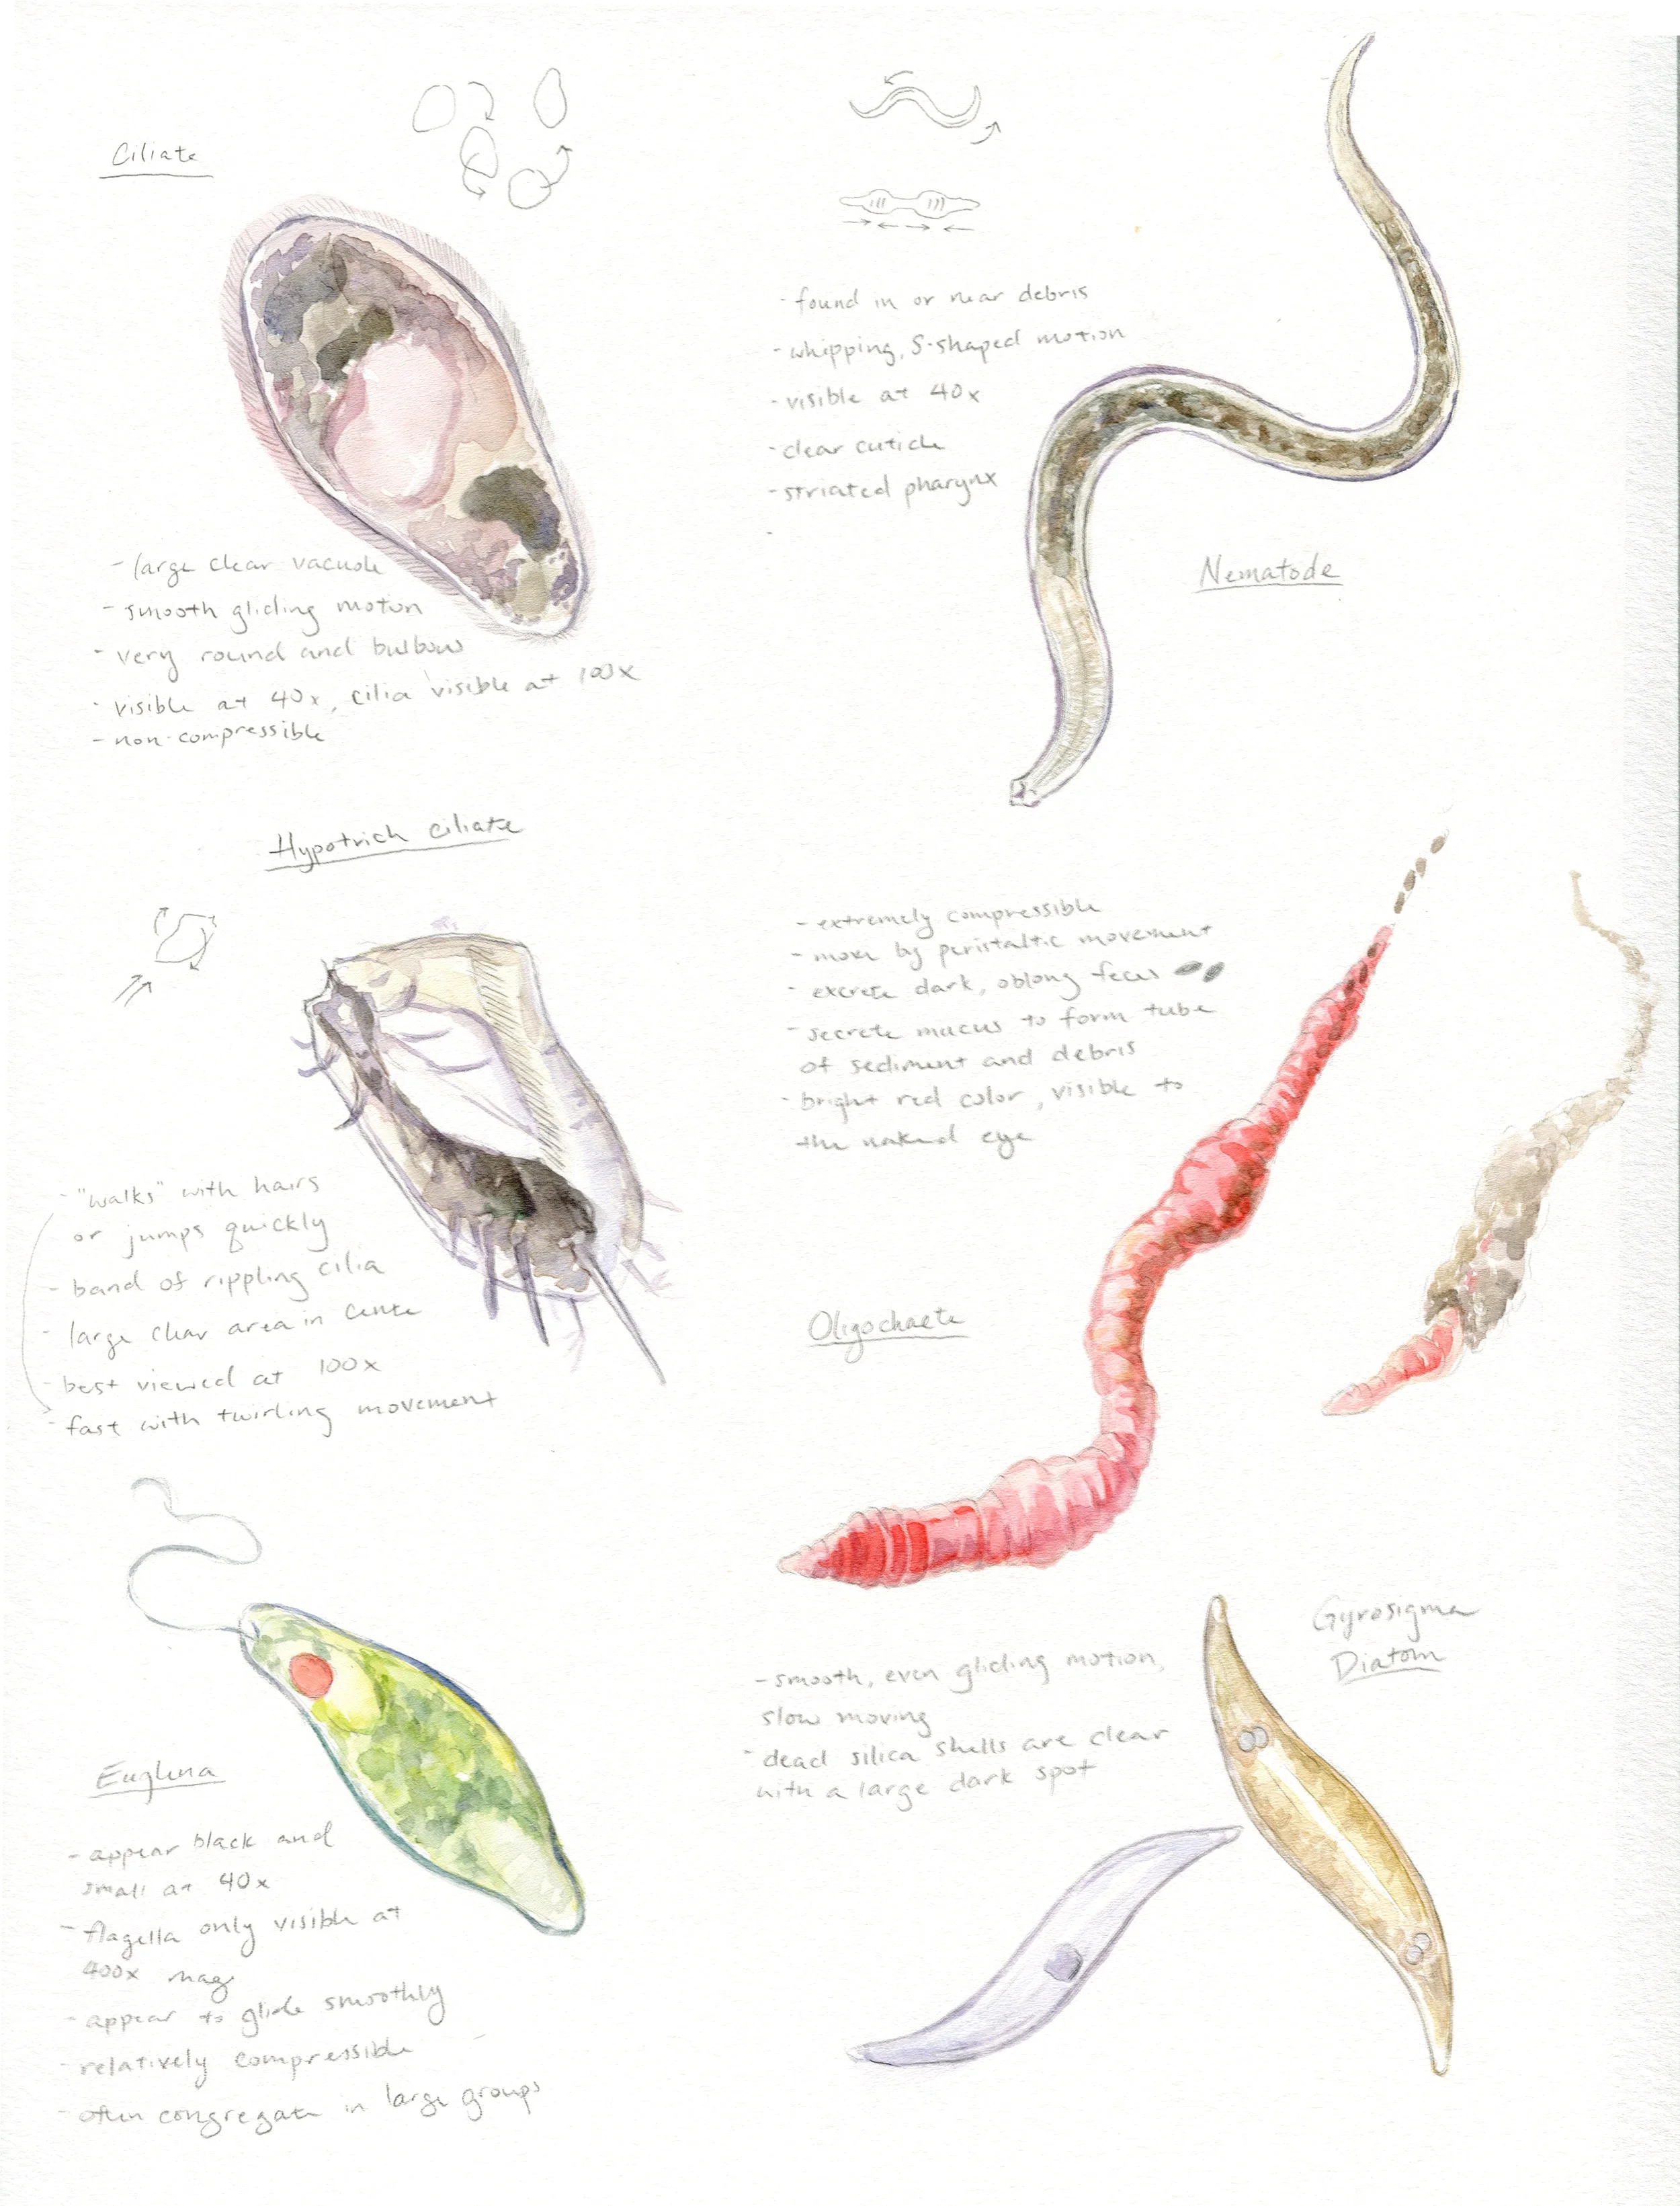 Ciliate
- large clear vacuole
- smooth gliding motion
- very round and bulbous
- visible at 40x, cilia visible at 100x
- non-compressible
- found in or near debris
- whipping, S-shaped motion
- visible at 40x
- clear cuticle
- striated pharynx
-
Nematode
Hypotrich ciliate
- "walks" with hairs
or jumps quickly
- band of rippling cilia
- large clear area in center
- best viewed at 100x
- fast with twirling movement
- extremely compressible
- move by peristaltic movement
- excrete dark, oblong feces
- secrete mucus to form tube
of sediment and debris
- bright red color, visible to
the naked eye
Oligochaete
Euglena
- appear black and
small at 40x
- flagella only visible at
400x mag
- appear to glide smoothly
- relatively compressible
- often congregate in large groups
Gyrosigma
Diatom
- smooth, even gliding motion,
slow moving
- dead silica shells are clear
with a large dark spot